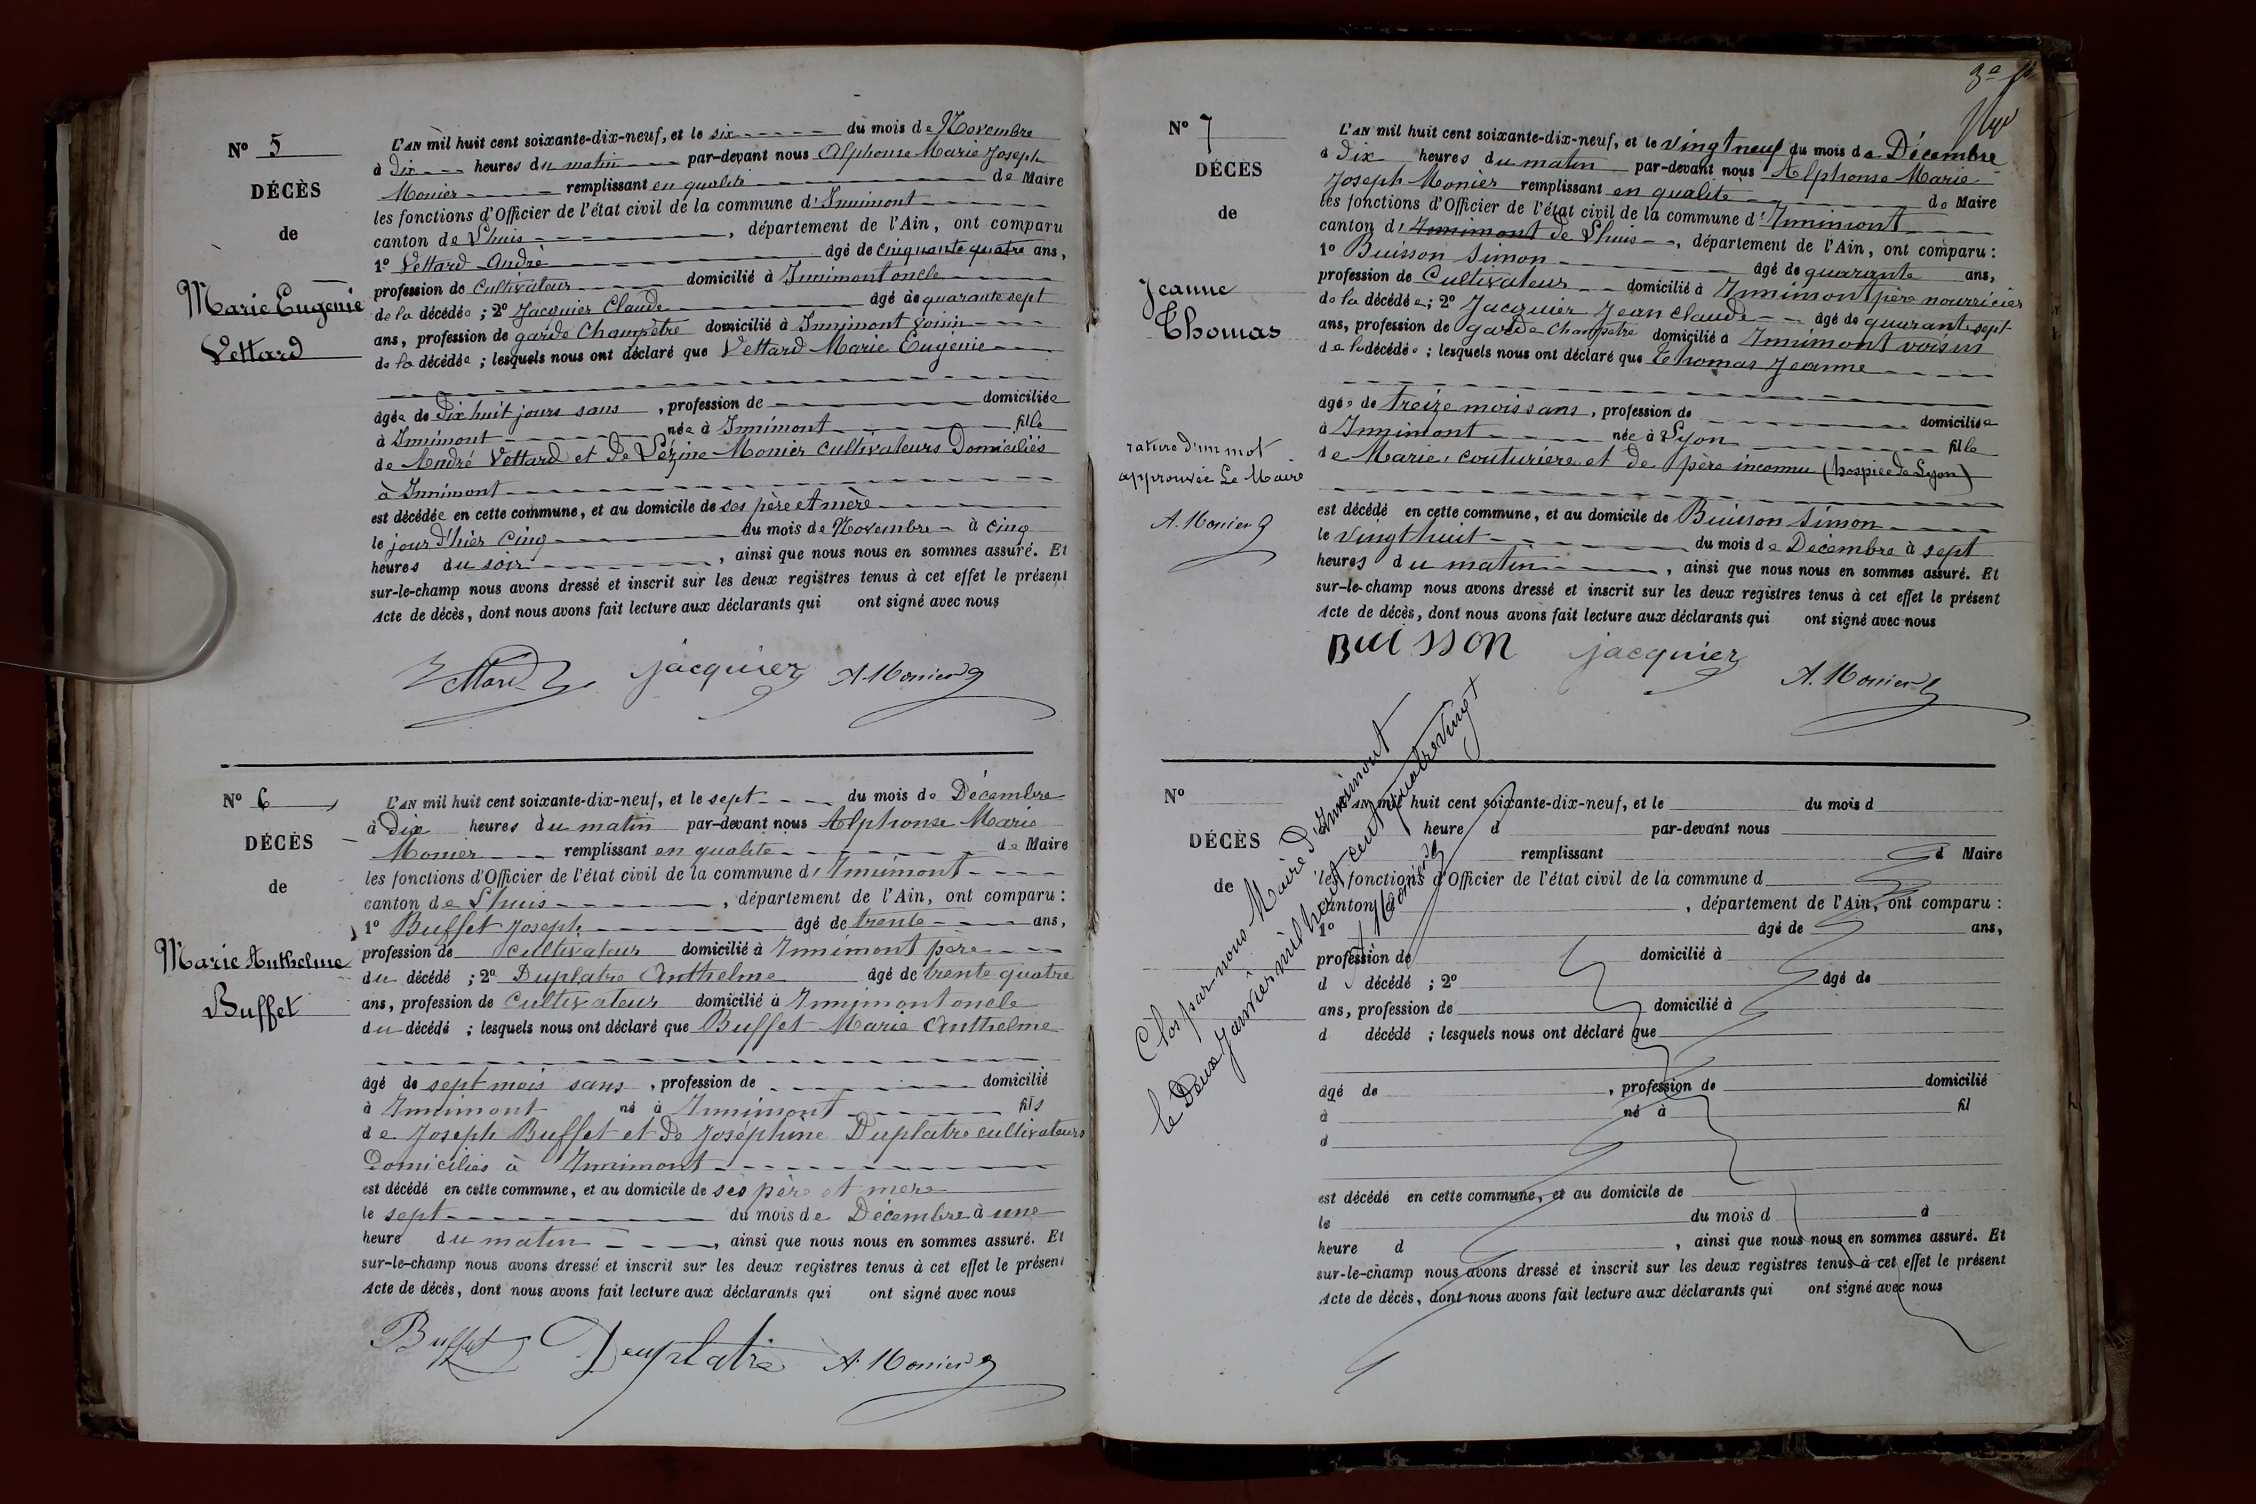 Nº 5
DÉCÈS
de
Marie Eugénie
Vettard
L'AN mil huit cent soixante-dix-neuf, et le six du mois de Novembre
à Dix heures du matin par-devant nous Alphonse Marie Joseph
Monier remplissant en qualité de Maire
les fonctions d'Officier de l'état civil de la commune d'Innimont
canton de Lhuis, département de l'Ain, ont comparu
1º Vettard André âgé de cinquante quatre ans,
profession de cultivateur domicilié à Innimont oncle
de la décédée ; 2º Jacquier Claude âgé de quarante sept
ans, profession de garde Champêtre domicilié à Innimont voisin
de la décédée ; lesquels nous ont déclaré que Vettard Marie Eugénie
âgée de Dix huit jours sans, profession de domiciliée
à Innimont née à Innimont fille
de André Vettard et de Lézine Monier cultivateurs Domiciliés
à Innimont
est décédée en cette commune, et au domicile de ses père et mère
le jour d'hier cinq du mois de Novembre à cinq
heures du soir, ainsi que nous nous en sommes assuré. Et
sur-le-champ nous avons dressé et inscrit sur les deux registres tenus à cet effet le présent
Acte de décès, dont nous avons fait lecture aux déclarants qui ont signé avec nous
Vettard jacquier A. Monier
Nº 6
DÉCÈS
de
Marie Anthelme
Buffet
L'AN mil huit cent soixante-dix-neuf, et le sept du mois de Décembre
à Dix heures du matin par-devant nous Alphonse Marie
Monier remplissant en qualité de Maire
les fonctions d'Officier de l'état civil de la commune d'Innimont
canton de Lhuis, département de l'Ain, ont comparu :
1º Buffet Joseph âgé de trente ans,
profession de cultivateur domicilié à Innimont père
du décédé ; 2º Duplatre Anthelme âgé de trente quatre
ans, profession de cultivateur domicilié à Innimont oncle
du décédé ; lesquels nous ont déclaré que Buffet Marie Anthelme
âgé de sept mois sans, profession de domicilié
à Innimont né à Innimont fils
de Joseph Buffet et de Joséphine Duplatre cultivateurs
Domiciliés à Innimont
est décédé en cette commune, et au domicile de ses père et mère
le sept du mois de Décembre à une
heure du matin, ainsi que nous nous en sommes assuré. Et
sur-le-champ nous avons dressé et inscrit sur les deux registres tenus à cet effet le présent
Acte de décès, dont nous avons fait lecture aux déclarants qui ont signé avec nous
Buffet Deuplatre A. Monier
Nº 7
DÉCÈS
de
Jeanne
Thomas
rature d'un mot
approuvée Le Maire
A. Monier
L'AN mil huit cent soixante-dix-neuf, et le vingt neuf du mois de Décembre
à Dix heures du matin par-devant nous Alphonse Marie
Joseph Monier remplissant en qualité de Maire
les fonctions d'Officier de l'état civil de la commune d'Innimont
canton d'Innimont de Lhuis, département de l'Ain, ont comparu :
1º Buisson Simon âgé de quarante ans,
profession de Cultivateur domicilié à Innimont père nourricier
de la décédée ; 2º Jacquier Jean Claude âgé de quarante sept
ans, profession de garde champetre domicilié à Innimont voisin
de la décédée ; lesquels nous ont déclaré que Thomas Jeanne
âgée de treize mois sans, profession de domiciliée
à Innimont née à Lyon fille
de Marie, couturière et de père inconnu (hospice de Lyon)
est décédé en cette commune, et au domicile de Buisson Simon
le vingt huit du mois de Décembre à sept
heures du matin, ainsi que nous nous en sommes assuré. Et
sur-le-champ nous avons dressé et inscrit sur les deux registres tenus à cet effet le présent
Acte de décès, dont nous avons fait lecture aux déclarants qui ont signé avec nous
BUISSON jacquier A. Monier
Clos par nous Maire d'Innimont
le Deux janvier mil huit cent quatre vingt
A. Monier
Nº
DÉCÈS
de
L'AN mil huit cent soixante-dix-neuf, et le du mois d
heure d par-devant nous
remplissant d Maire
les fonctions d'Officier de l'état civil de la commune d
canton d, département de l'Ain, ont comparu :
1º âgé de ans,
profession de domicilié à
d décédé ; 2º âgé de
ans, profession de domicilié à
d décédé ; lesquels nous ont déclaré que
âgé de, profession de domicilié
à né à fil
d
est décédé en cette commune, et au domicile de
le du mois d à
heure d, ainsi que nous nous en sommes assuré. Et
sur-le-champ nous avons dressé et inscrit sur les deux registres tenus à cet effet le présent
Acte de décès, dont nous avons fait lecture aux déclarants qui ont signé avec nous